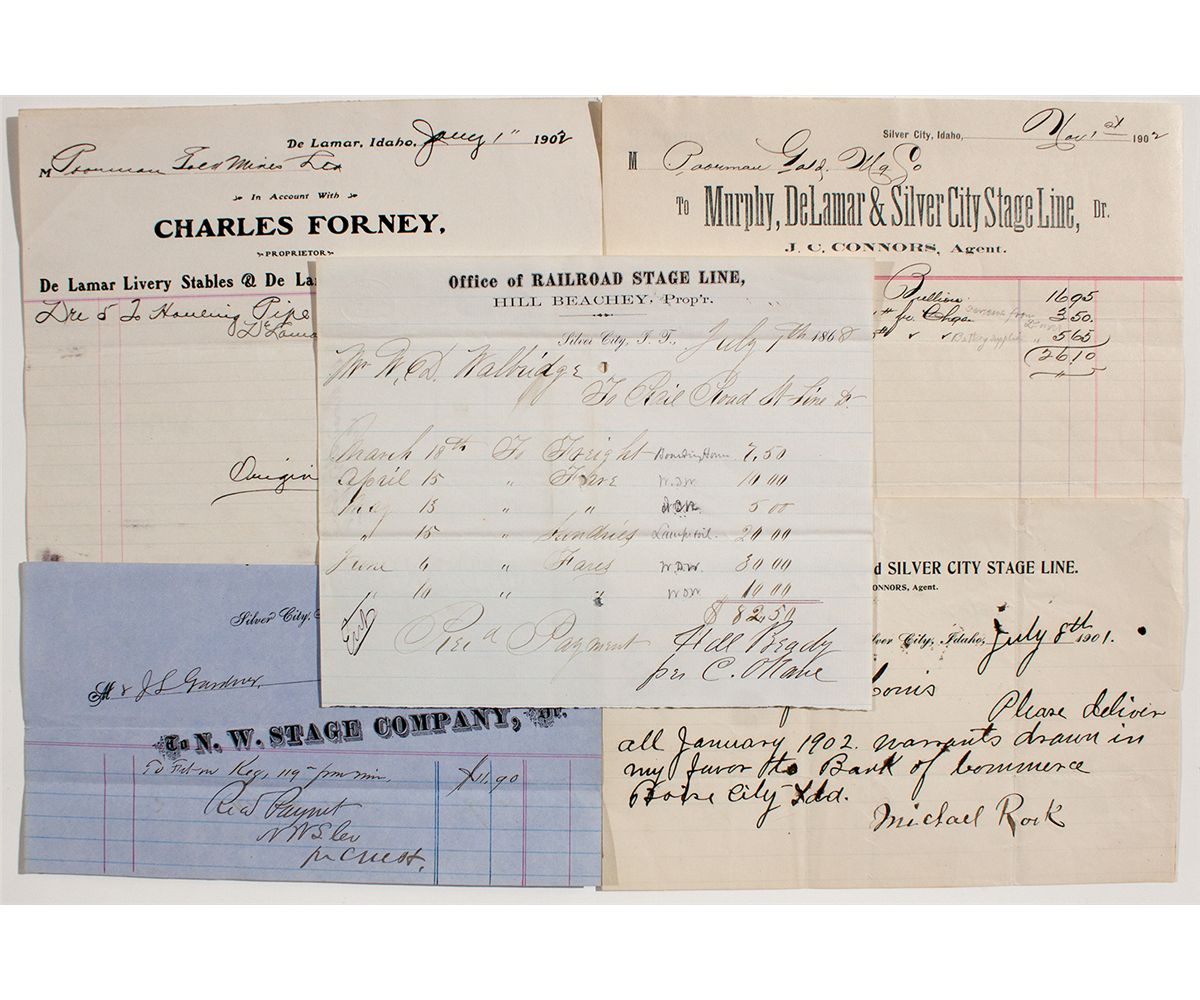 De Lamar, Idaho, Jany 1" 1902
M Poorman Gold Mines Ltd
In Account With
CHARLES FORNEY,
PROPRIETOR
De Lamar Livery Stables & De La
Dec 5 To Hauling Pipe
DeLama
Origin
Silver City, Idaho, May 1st 1902
M Poorman Gold Mg Co
To Murphy, DeLamar & Silver City Stage Line, Dr.
J. C. CONNORS, Agent.
Bullion 1695
350
Battery supplies 565
2610
Office of RAILROAD STAGE LINE,
HILL BEACHEY, Prop'r.
Silver City, I. T., July 7th 1868
Mr W. D. Walbridge
To Rail Road St Line Dr
March 18th To Freight Boarding House 7,50
April 15 " Fare W.D.W. 10 00
May 13 " " 5 00
" 15 " Sundries Lamp oil. 20 00
June 6 " Fares W.D.W. 30 00
" 10 " " W.D.W. 10 00
$ 82,50
Rec'd Payment Hill Beachy
per C. O'Kane
Silver City,
Mr J L Gardner
To N. W. STAGE COMPANY, Dr.
$11.90
Rec'd Paymt
N W S Co
pr
d SILVER CITY STAGE LINE.
ONNORS, Agent.
lver City, Idaho, July 8th 1901.
Please deliver
all January 1902. warrants drawn in
my favor to Bank of Commerce
Boise City Idd.
Michael Rock